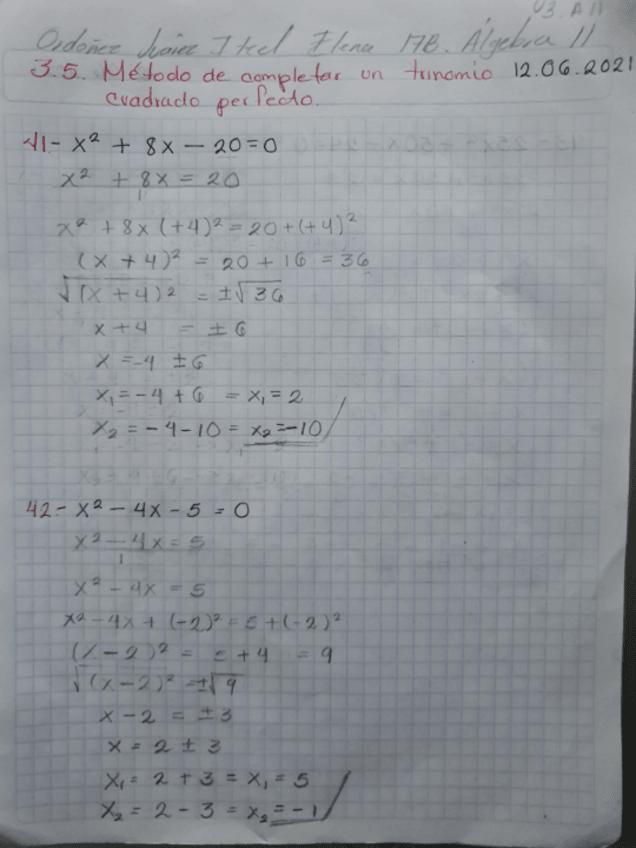 V3. A11
Ordoñez Juárez Itzel Elena 17B. Álgebra II
3.5. Método de completar un trinomio 12.06.2021
cuadrado perfecto.
41- x² + 8x - 20 = 0
x² + 8x = 20
x² + 8x (+4)² = 20 + (+4)²
(x + 4)² = 20 + 16 = 36
√(x + 4)² = ±√36
x + 4 = ± 6
x = -4 ± 6
x₁ = -4 + 6 = x₁ = 2
x₂ = -4 - 10 = x₂ = -10
42- x² - 4x - 5 = 0
x² - 4x = 5
x² - 4x = 5
x² - 4x + (-2)² = 5 + (-2)²
(x - 2)² = 5 + 4 = 9
√(x - 2)² = ±√9
x - 2 = ± 3
x = 2 ± 3
x₁ = 2 + 3 = x₁ = 5
x₂ = 2 - 3 = x₂ = -1